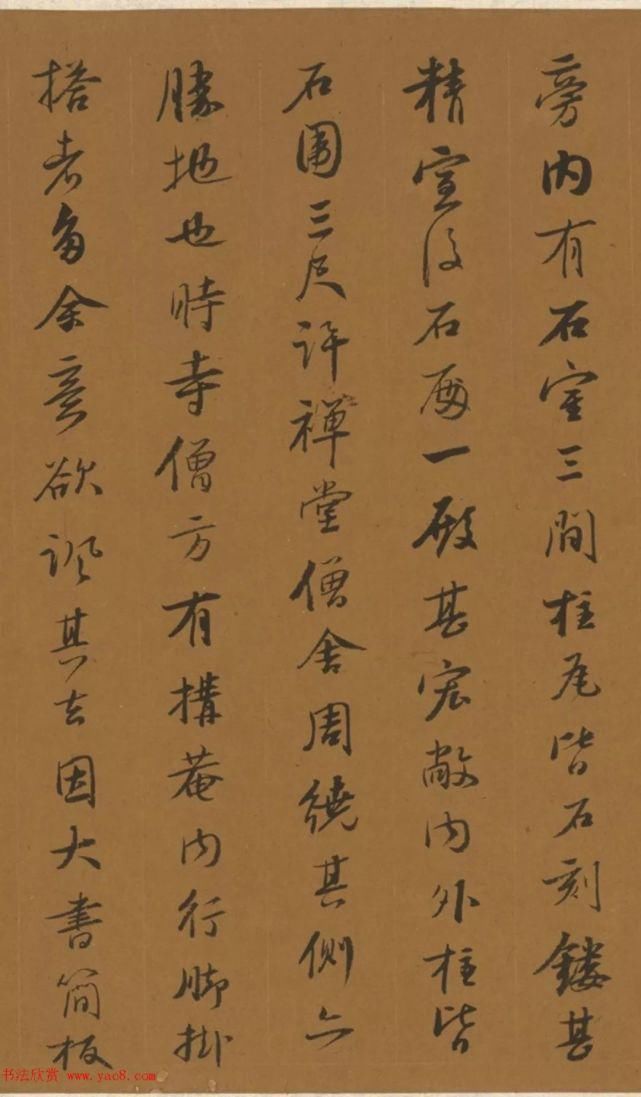 旁内有石室三間柱瓦皆石刻鏤甚
精室後石面一殿甚宏敞内外柱皆
石圍三尺許禪堂僧舍周繞其側亦
勝地也時寺僧方有搆菴内行脚掛
搭者多余意欲諷其去因大書簡板
书法欣赏 www.yac8.com